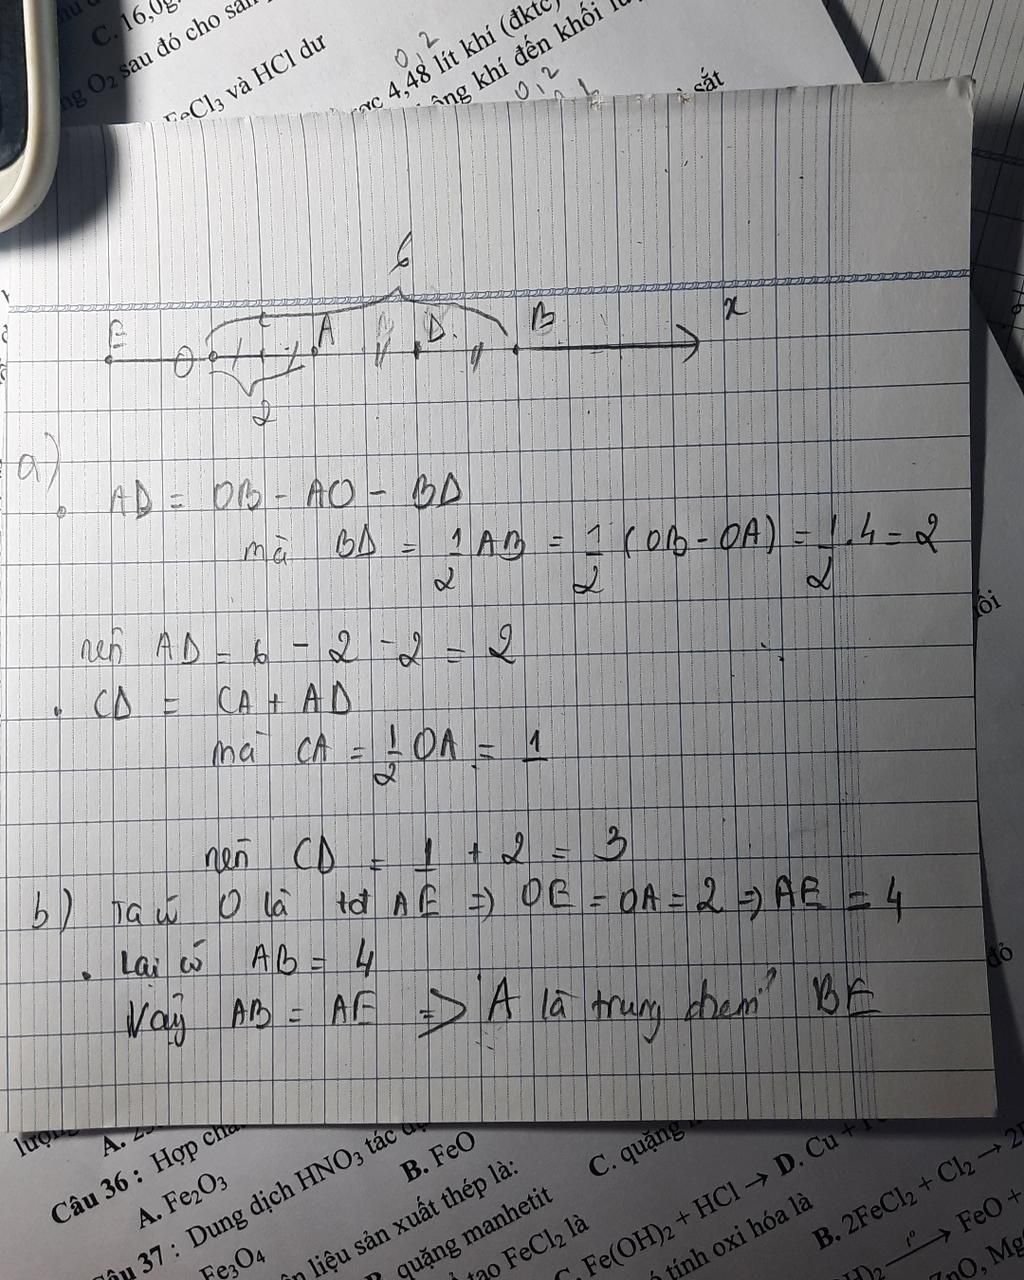 C. 16,0g
ng O₂ sau đó cho sản
FeCl₃ và HCl dư
0,2
4,48 lít khí (đktc)
0,2
ông khí đến khối
sắt
6
E O C A D B x
2
a)
. AD = OB - AO - BD
mà BD = 1/2 AB = 1/2 (OB - OA) = 1/2 . 4 = 2
nên AD = 6 - 2 - 2 = 2
. CD = CA + AD
mà CA = 1/2 OA = 1
nên CD = 1 + 2 = 3
b) Ta có O là tđ AE => OE = OA = 2 => AE = 4
. Lại có AB = 4
Vậy AB = AE => A là trung điểm BE
lượng
A.
Câu 36 : Hợp chấ
A. Fe₂O₃
B. FeO
C. quặng
D. Cu +
Câu 37 : Dung dịch HNO₃ tác
Fe₃O₄
n liệu sản xuất thép là:
quặng manhetit
tạo FeCl₂ là
C. Fe(OH)₂ + HCl →
B. 2FeCl₂ + Cl₂ →
tính oxi hóa là
FeO +